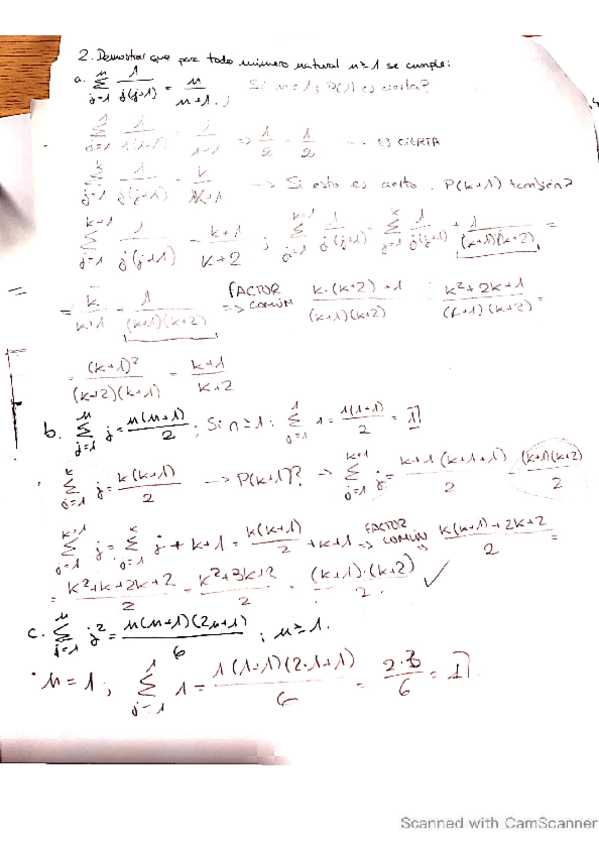 2. Demostrar que para todo número natural n≥1 se cumple:
a. ∑_{j=1}^{n} 1/(j(j+1)) = n/(n+1) ; Si n=1 ; P(1) es cierta?
∑_{j=1}^{1} 1/(1(1+1)) = 1/(1+1) => 1/2 = 1/2 → es CIERTA
∑_{j=1}^{k} 1/(j(j+1)) = k/(k+1) → Si esto es cierto, P(k+1) también?
∑_{j=1}^{k+1} 1/(j(j+1)) = (k+1)/(k+2) ; ∑_{j=1}^{k+1} 1/(j(j+1)) = ∑_{j=1}^{k} 1/(j(j+1)) + 1/((k+1)(k+2)) =
= k/(k+1) + 1/((k+1)(k+2)) FACTOR COMÚN => (k·(k+2)+1)/((k+1)(k+2)) = (k²+2k+1)/((k+1)(k+2)) =
= (k+1)²/((k+2)(k+1)) = (k+1)/(k+2)
b. ∑_{j=1}^{n} j = n(n+1)/2 ; Si n≥1 : ∑_{j=1}^{1} 1 = 1(1+1)/2 = 1
∑_{j=1}^{k} j = k(k+1)/2 → P(k+1)? → ∑_{j=1}^{k+1} j = k+1(k+1+1)/2 = (k+1)(k+2)/2
∑_{j=1}^{k+1} j = ∑_{j=1}^{k} j + k+1 = k(k+1)/2 + k+1 => FACTOR COMÚN => (k(k+1)+2k+2)/2 =
= (k²+k+2k+2)/2 = (k²+3k+2)/2 = (k+1)·(k+2)/2 ✓
c. ∑_{j=1}^{n} j² = n(n+1)(2n+1)/6 ; n≥1.
· n=1 ; ∑_{j=1}^{1} 1 = 1(1+1)(2·1+1)/6 = 2·3/6 = 1
Scanned with CamScanner